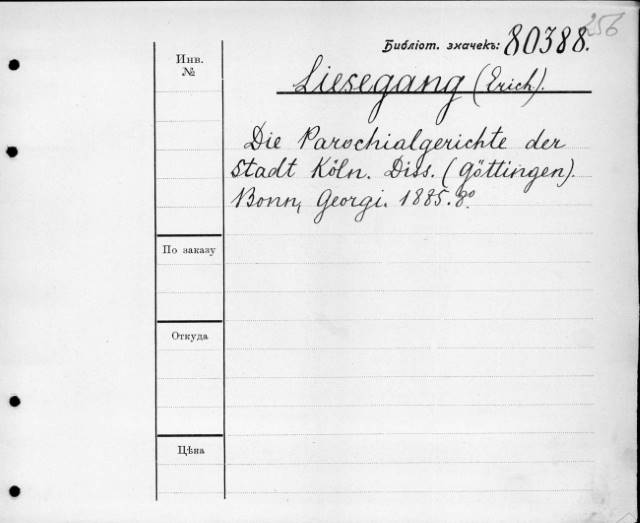 256
Библіот. значекъ: 80388.
Инв.
№
Liesegang (Erich).
Die Parochialgerichte der
Stadt Köln. Diss. (Göttingen).
Bonn, Georgi. 1885. 8º
По заказу
Откуда
Цѣна